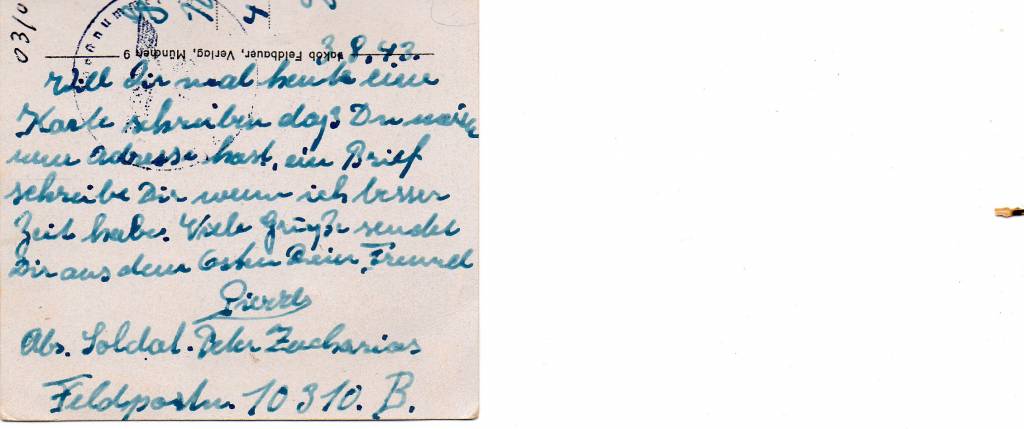 03/0
3.8.43.
Jakob Feldbauer, Verlag, München 9
Will Dir mal heute eine
Karte schreiben daß Du meine
neue Adresse hast, ein Brief
schreibe Dir wenn ich besser
Zeit habe. Viele Grüße sendet
Dir aus dem Osten Dein Freund
Abs. Soldat. Peter Zacharias
Feldpostn. 10310. B.